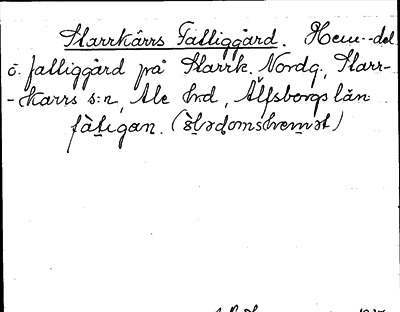 Starrkärrs Fattiggård. Hem--del
o. fattiggård på Starrk. Nordg., Starr-
-kärrs s:n, Ale hrd, Älfsborgs län.
fàtigan. (òlədomshemət)